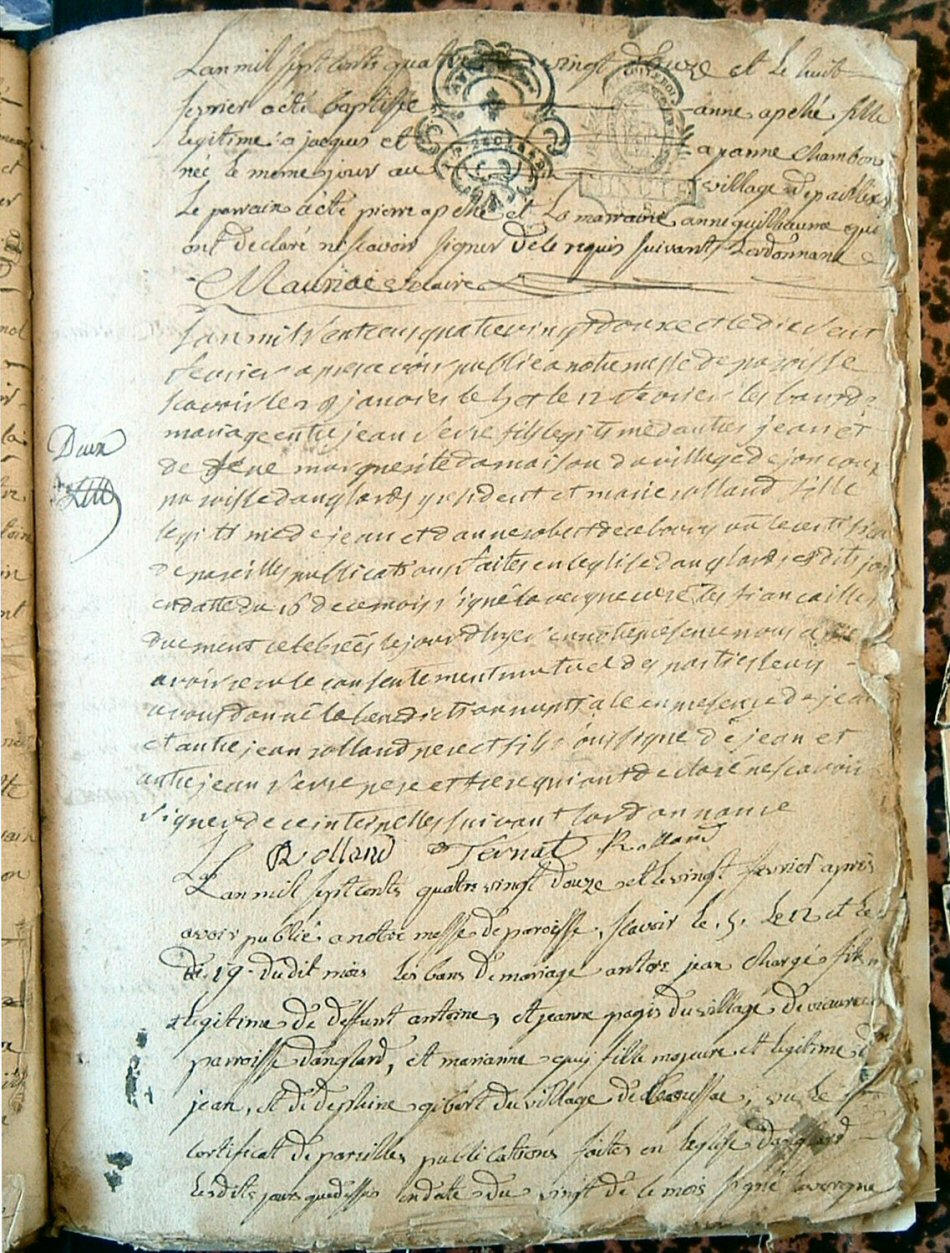 Lan mil sept cents quatre vingt douze et le huit
fevrier a été baptisée anne apché fille
legitime a jacques et a jeanne Chambon
née le meme jour au village de
Le parrain a été pierre apché et La marraine anne guilhaume qui
ont declaré ne scavoir signer de ce requis suivant Lordonnance
Mauriac vicaire
Lan mil sept cens quatre vingt douze et le dix sept
fevrier apres avoir publié a notre messe de paroisse
scavoir le 29 janvier le 5 et le 12 fevrier les bans de
mariage entre jean serre fils legitime d autre jean et
de feue marguerite damaison du village de joncoux
paroisse danglards y resident et marie rolland fille
legitime de jean et d anne robert de ce bourg vu le certificat
de pareilles publications faites en leglise danglards lesdits jours
en datte du 16 de ce mois signé lavergne curé les fiancailles
duement celebrées le jour d hyer en notre presence nous
avoir reçu le consentement mutuel des parties leurs
avons donné la benediction nuptiale en presence de jean
et autre jean rolland pere et fils soussigné de jean et
autre jean serre pere et frere qui ont declaré ne scavoir
signer de ce interpellés suivant lordonnance
Rolland Ternat Rolland
Lan mil sept cents quatre vingt douze et le vingt fevrier après
avoir publié a notre messe de paroisse, scavoir le .5. Le 12 et le
19 dudit mois les bans de mariage entre jean Chargé fils
legitime de deffunt antoine, et jeanne pagis du village de
parroisse danglard, et marianne fille majeure et legitime a
jean, et de delphine gibert du village de, vu le
certificat de pareilles publications faites en leglise danglard
lesdits jours que dessus en date du vingt de ce mois signé lavergne
Deux